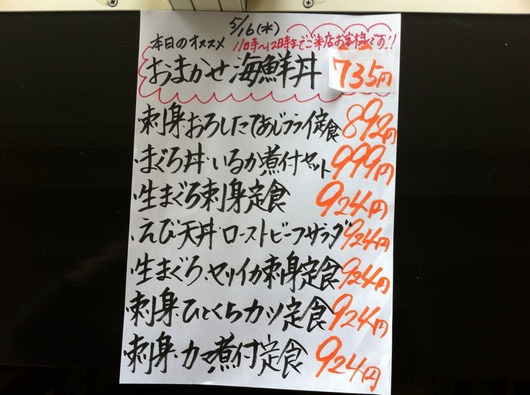 5/16(水)
本日のオススメ 11時~12時までご来店お客様です!!
おまかせ海鮮丼 735円
・刺身・おろしたてあじフライ定食 892円
・まぐろ丼・いるか煮付セット 999円
・生まぐろ刺身定食 924円
・えび天丼・ローストビーフサラダ 924円
・生まぐろ、ヤリイカ刺身定食 924円
・刺身・ひとくちカツ定食 924円
・刺身・カマ煮付定食 924円